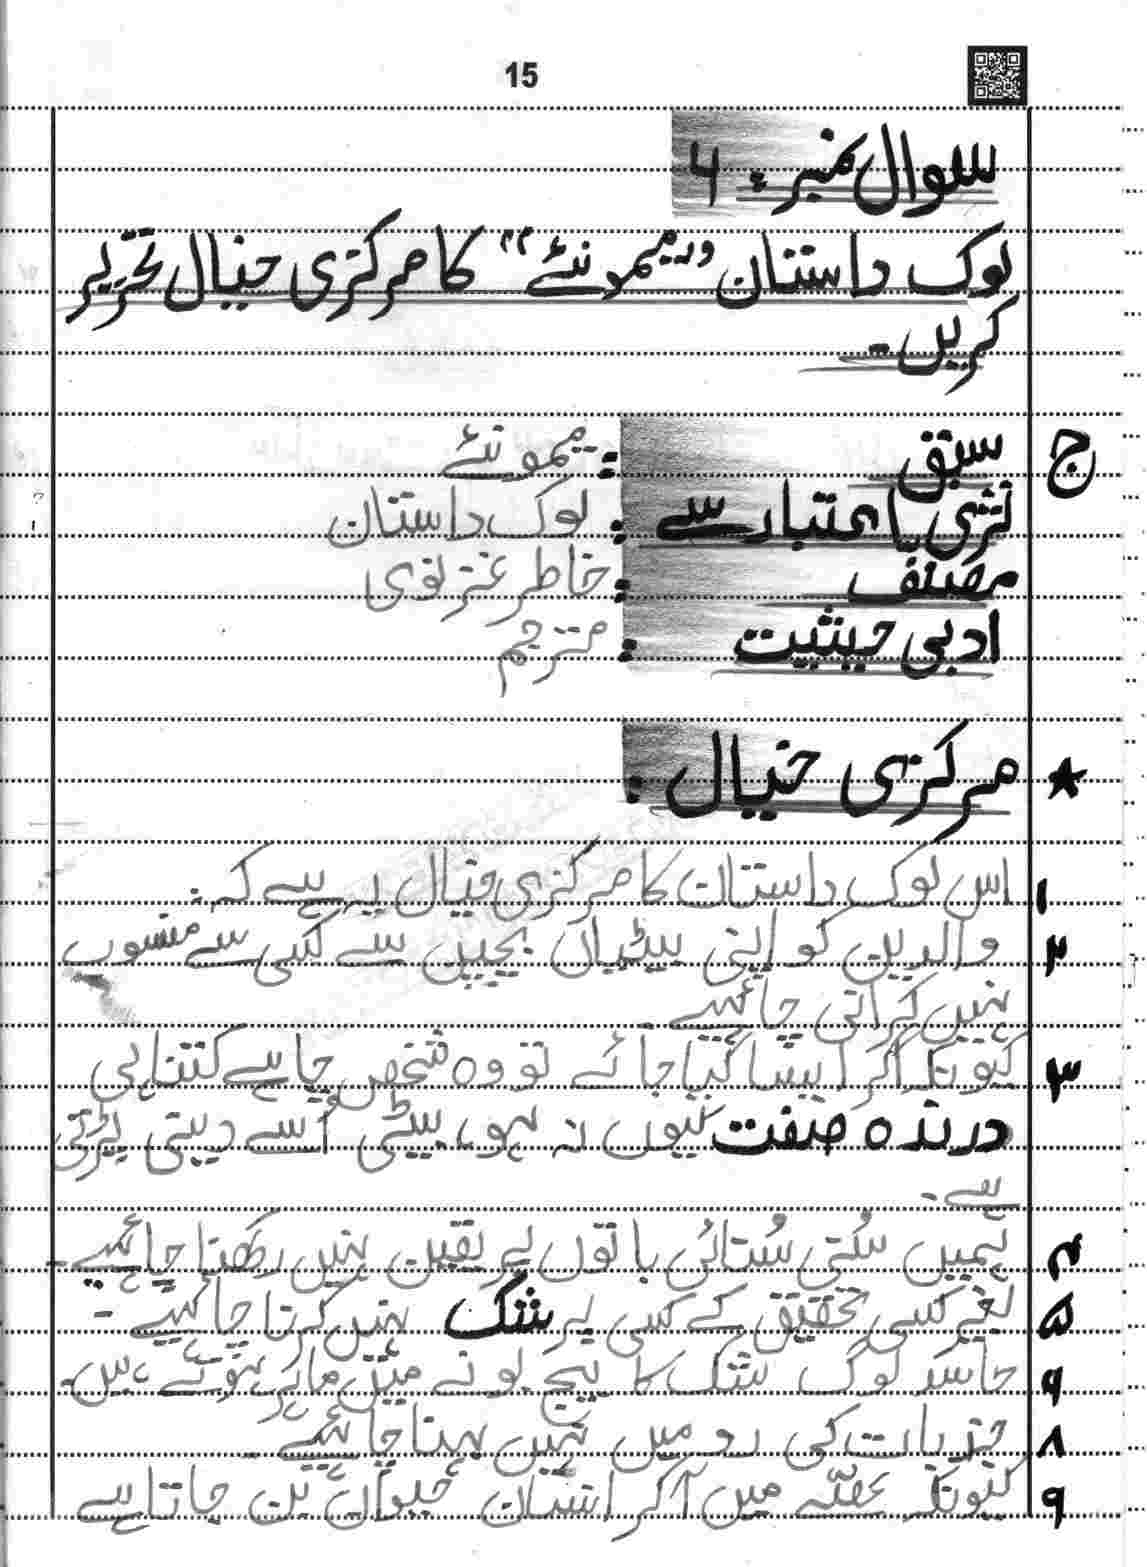 15
سوال نمبر: ۶
لوک داستان "میمونئے" کا مرکزی خیال تحریر
کریں۔
ج سبق : میمونئے
نثری اعتبار سے : لوک داستان
مصنف : خاطر غزنوی
ادبی حیثیت : مترجم
★ مرکزی خیال :
۱ اس لوک داستان کا مرکزی خیال یہ ہے کہ:
۲ والدین کو اپنی بیٹیاں بچپن سے کسی سے منسوب
نہیں کرانی چاہئے
۳ کیونکہ اگر ایسا کیا جائے تو وہ شخص چاہے کتنا ہی
درندہ صفت کیوں نہ ہو، بیٹی اُسے دینی پڑتی
ہے۔
۴ ہمیں سُنی سُنائی باتوں پر یقین نہیں رکھنا چاہئے۔
۵ بغیر کسی تحقیق کے کسی پر شک نہیں کرنا چاہئے۔
۶ حاسد لوگ شک کا بیج بونے میں ماہر ہوئے ہیں۔
۸ جذبات کی رو میں نہیں بہنا چاہئے۔
۹ کیونکہ غصّہ میں آکر انسان حیوان بن جاتا ہے